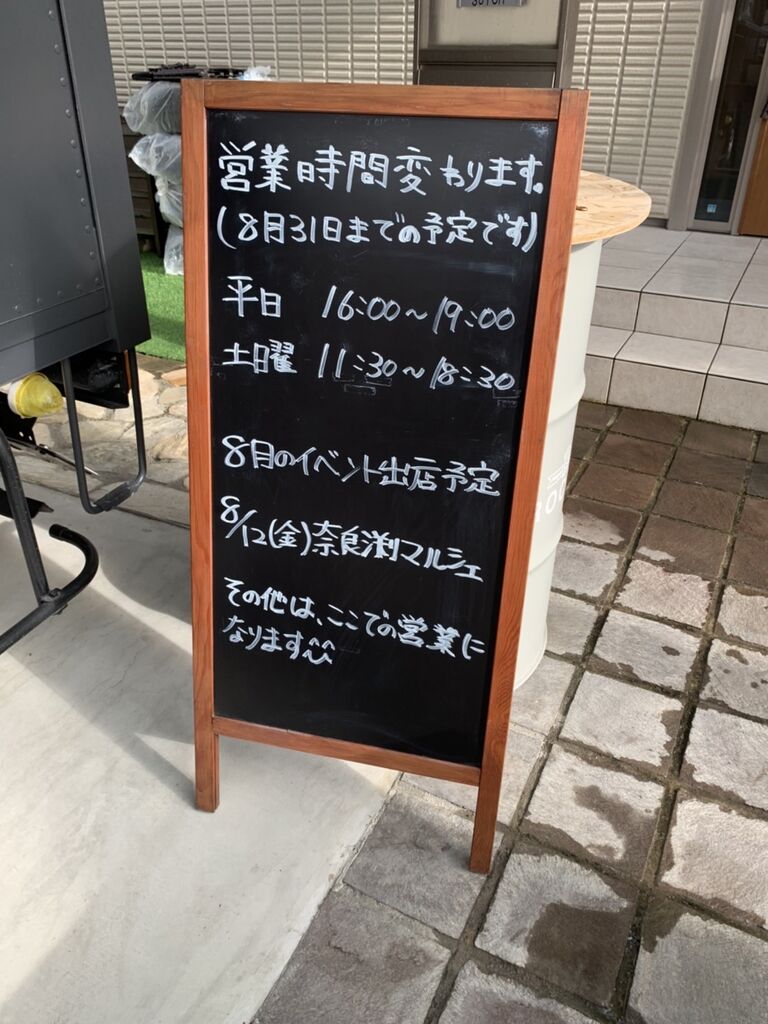 営業時間変わります。
(8月31日までの予定です)
平日 16:00～19:00
土曜 11:30～18:30
8月のイベント出店予定
8/12(金)奈良渕マルシェ
その他は、ここでの営業に
なります^^